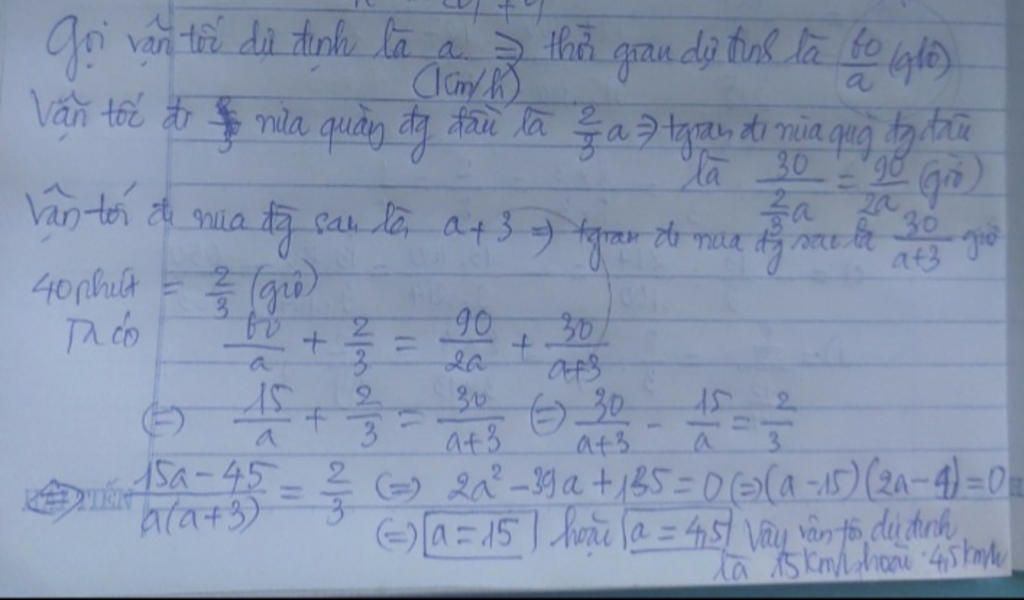 Gọi vận tốc dự định là a ⇒ thời gian dự định là 60/a (giờ)
(km/h)
Vận tốc đi nửa quãng đg đầu là 2/3 a ⇒ tgian đi nửa quãg đg đầu
là 30/(2/3 a) = 90/2a (giờ)
Vận tốc đi nửa đg sau là a+3 ⇒ tgian đi nửa đg sau là 30/(a+3) giờ
40 phút = 2/3 (giờ)
Ta có 60/a + 2/3 = 90/2a + 30/(a+3)
(=) 15/a + 2/3 = 30/(a+3) (=) 30/(a+3) - 15/a = 2/3
(15a - 45)/(a(a+3)) = 2/3 (=) 2a² - 39a + 135 = 0 (=) (a-15)(2a-9) = 0
(=) a = 15 hoặc a = 4,5 Vậy vận tốc dự định
là 15 km/h hoặc 4,5 km/h